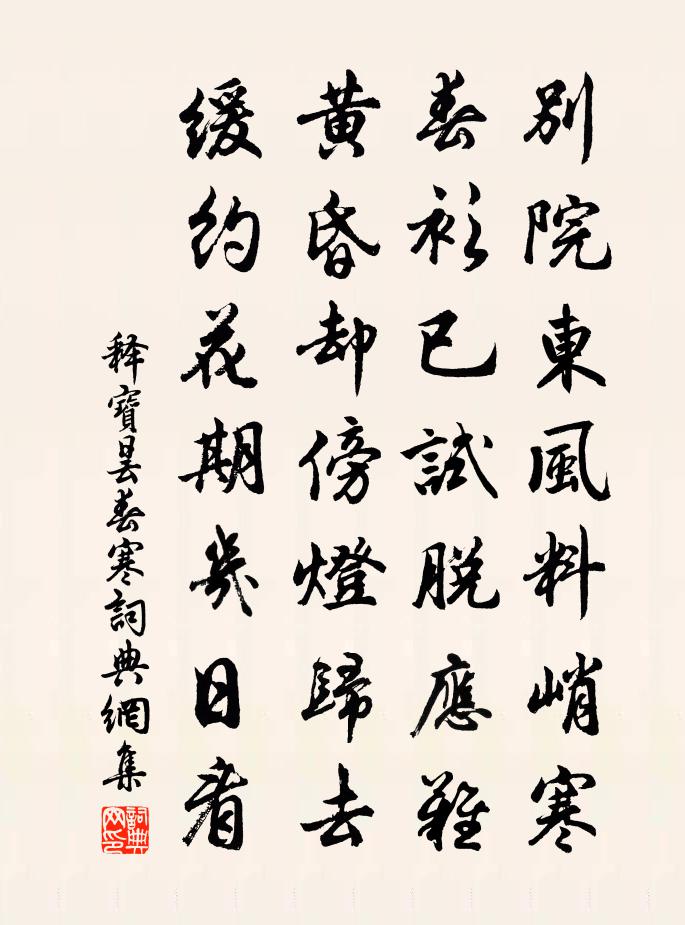 別院東風料峭寒
春衫已試脫應難
黃昏却傍燈歸去
緩約花期幾日看
释寶曇春寒詞典網集
詞典網印